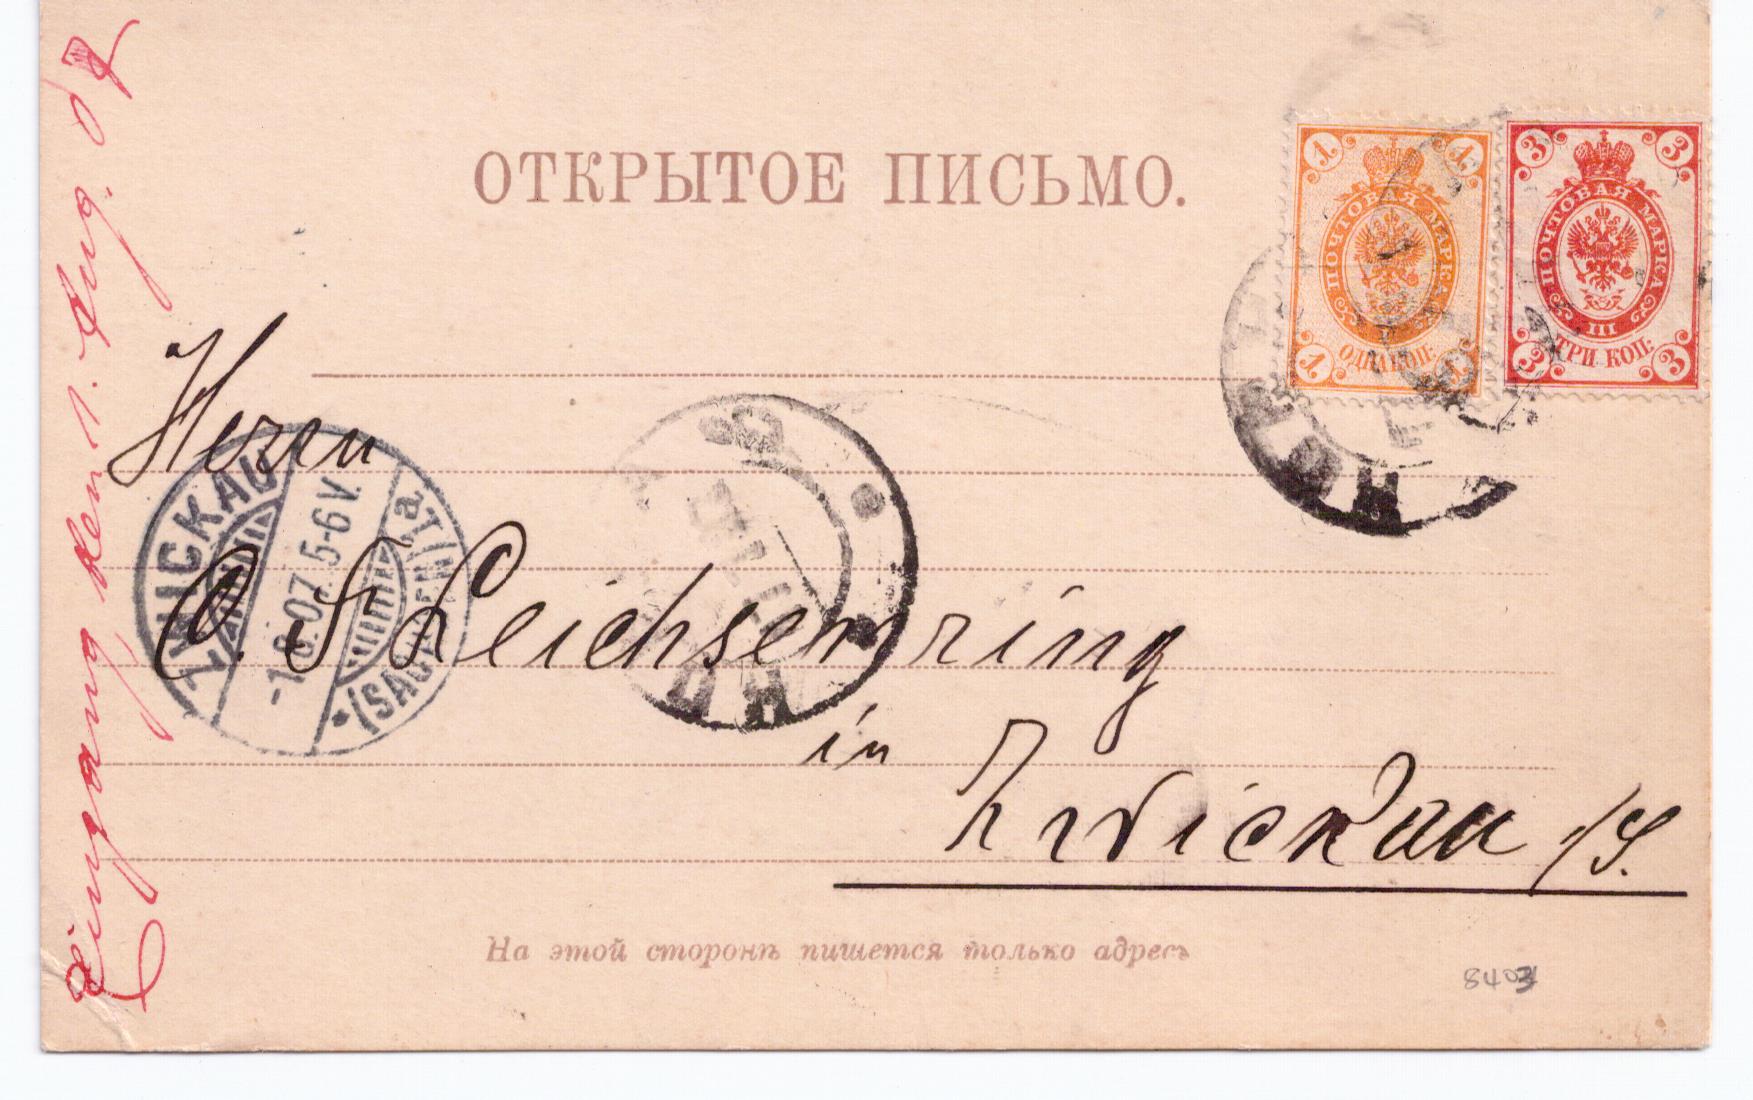 ОТКРЫТОЕ ПИСЬМО.
1 1
ПОЧТОВАЯ МАРКА
I
ОДНА КОП:
1 1
3 3
ПОЧТОВАЯ МАРКА
III
ТРИ КОП:
3 3
Eingang den 1. Aug. 07
Herrn
O. F. Leichsenring
in
Zwickau /S.
ZWICKAU
-1.8.07. 5-6 V.
* (SACHSEN) 1 a.
На этой сторонѣ пишется только адресъ
8403